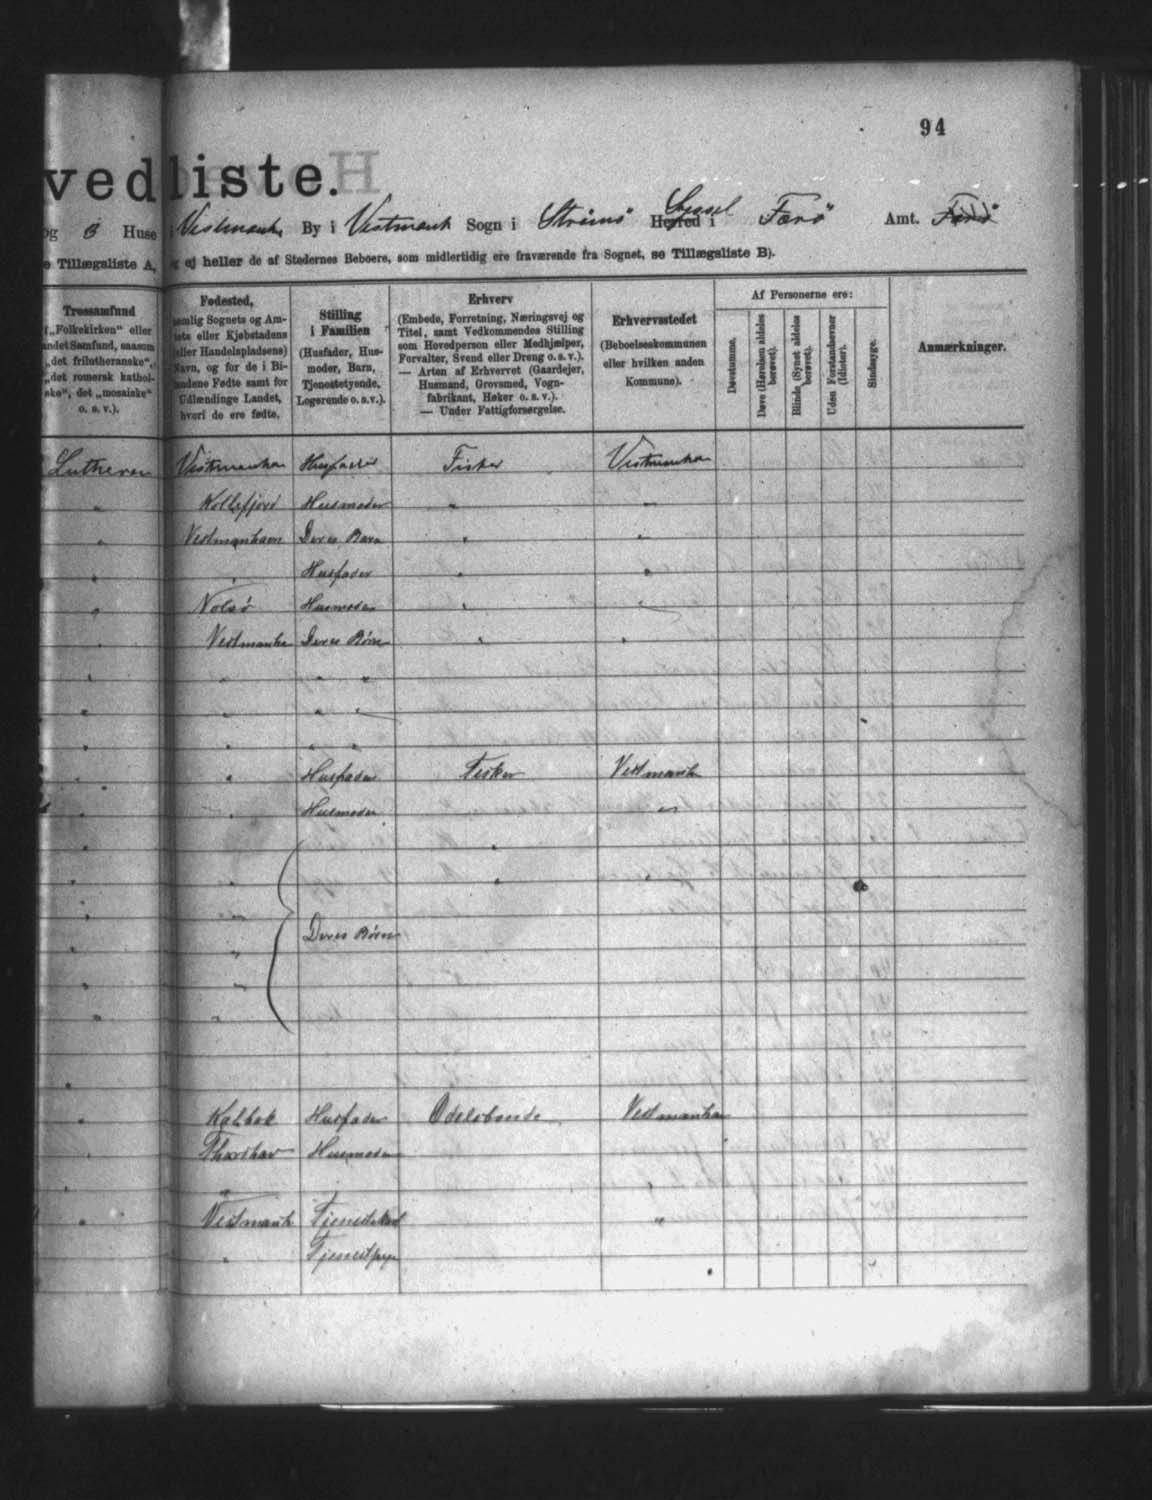 94
vedliste.
og 3 Huse i Vestmanh. By i Vestmanh Sogn i Strømø Herred i Syssel Færø Amt. Færø
e Tillægsliste A, og ej heller de af Stedernes Beboere, som midlertidig ere fraværende fra Sognet, se Tillægsliste B).
Trossamfund
(„Folkekirken“ eller
andet Samfund, saasom
„det frilutheranske“,
„det romersk kathol-
ske“, det „mosaiske“
o. s. v.).
Fødested,
nemlig Sognets og Am-
tets eller Kjøbstadens
(eller Handelspladsens)
Navn, og for de i Bi-
landene Fødte samt for
Udlændinge Landet,
hvori de ere fødte.
Stilling
i Familien
(Husfader, Hus-
moder, Barn,
Tjenestetyende,
Logerende o.s.v.).
Erhverv
(Embede, Forretning, Næringsvej og
Titel, samt Vedkommendes Stilling
som Hovedperson eller Medhjælper,
Forvalter, Svend eller Dreng o. s. v.).
— Arten af Erhvervet (Gaardejer,
Husmand, Grovsmed, Vogn-
fabrikant, Høker o. s. v.).
— Under Fattigforsørgelse.
Erhvervsstedet
(Beboelseskommunen
eller hvilken anden
Kommune).
Af Personerne ere:
Døvstumme.
Døve (Hørelsen aldeles
berøvet).
Blinde (Synet aldeles
berøvet).
Uden Forstandsevner
(Idioter).
Sindssyge.
Anmærkninger.
Lutheran Vestmanha Husfader Fisker Vestmanha
" Kollefjord Husmoder " "
" Vestmanhavn Deres Barn " "
" " Husfader " "
" Nolsø Husmoder " "
" Vestmanha Deres Børn " "
" " " "
" " " "
" " " "
" " Husfader Fisker Vestmanh
" Husmoder "
" "
" " " "
" "
" " Deres Børn
" "
" "
"
" Kalbak Husfader Odelsbonde Vestmanha
" Thorshav Husmoder
" "
" Vestmanh Tjenestekarl "
" Tjenestpige